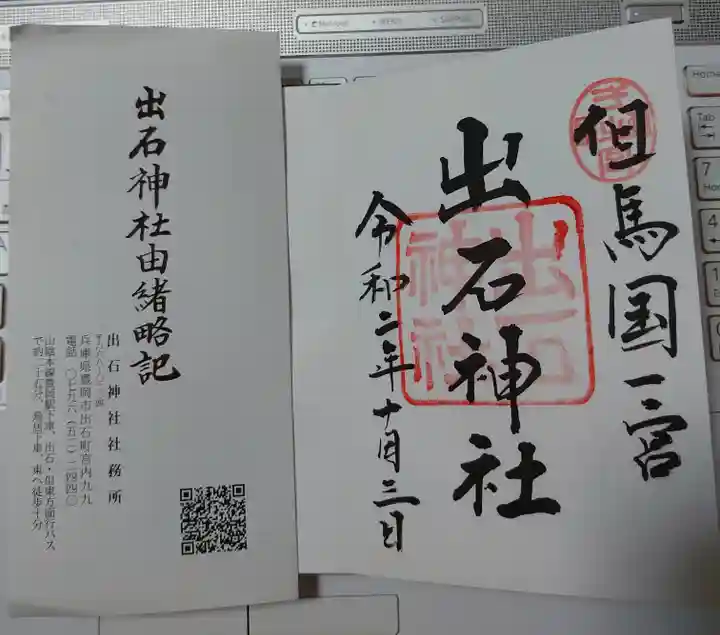 但馬国一宮
出石神社
令和二年十月三日
出石
神社
出石神社由緒略記
出石神社社務所
兵庫県豊岡市出石町宮内九九
電話 〇七九六(五二)二四四〇
山陰本線豊岡駅下車、出石・但東方面行バス
で約二十五分、鳥居下車、東へ徒歩十分
Home
Tab
7
4